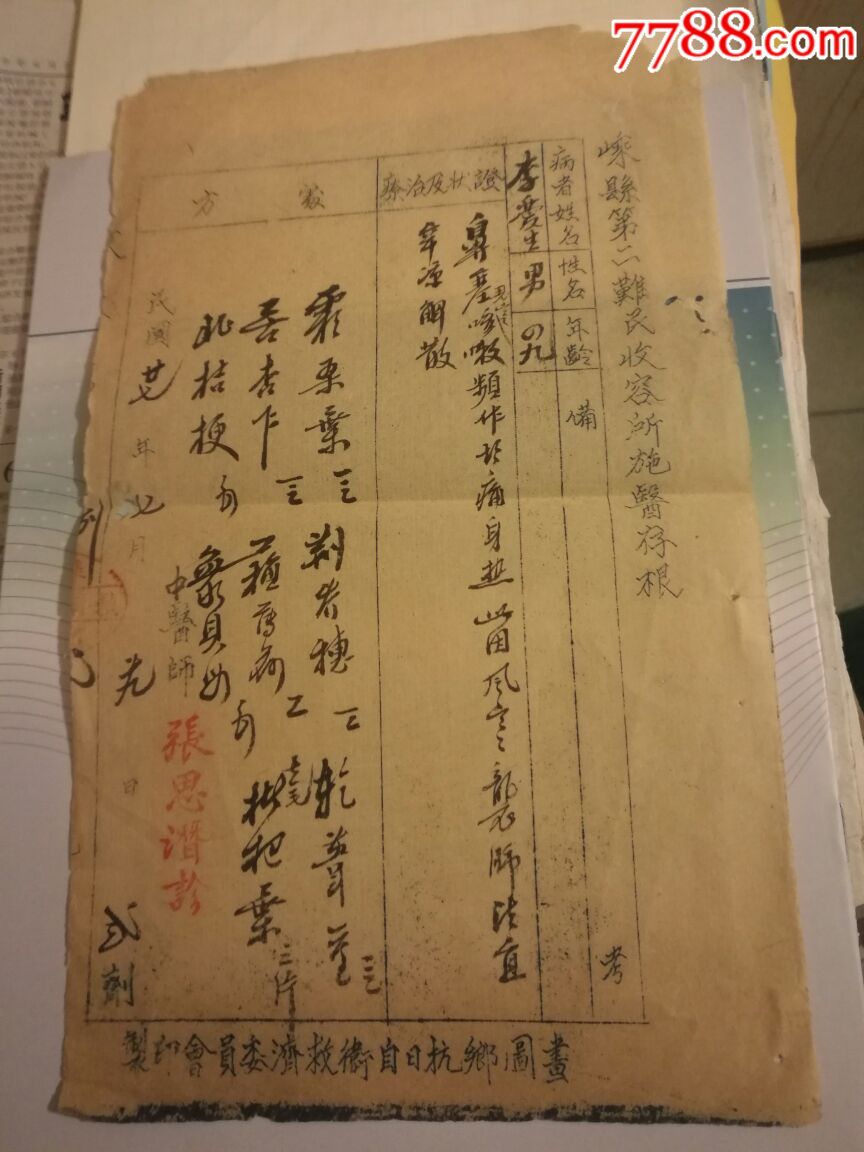 7788.com
嵊縣第二難民收容所施醫存根
病者姓名 性名 年齡 備 考
李 生 男 四九
證狀及治療
鼻塞咳嗽頻作 痛身熱 此因風寒襲肺法宜
辛涼解散
處 方
霜桑葉 三 荊芥穗 三 乾葦莖 三
苦杏仁 三 蘇薄荷 工 枇杷葉 三片
北桔梗 象貝母
中醫師 張思潛診
民國 廿七 年 七 月 日
劑
畫圖鄉抗日自衛救濟委員會印製